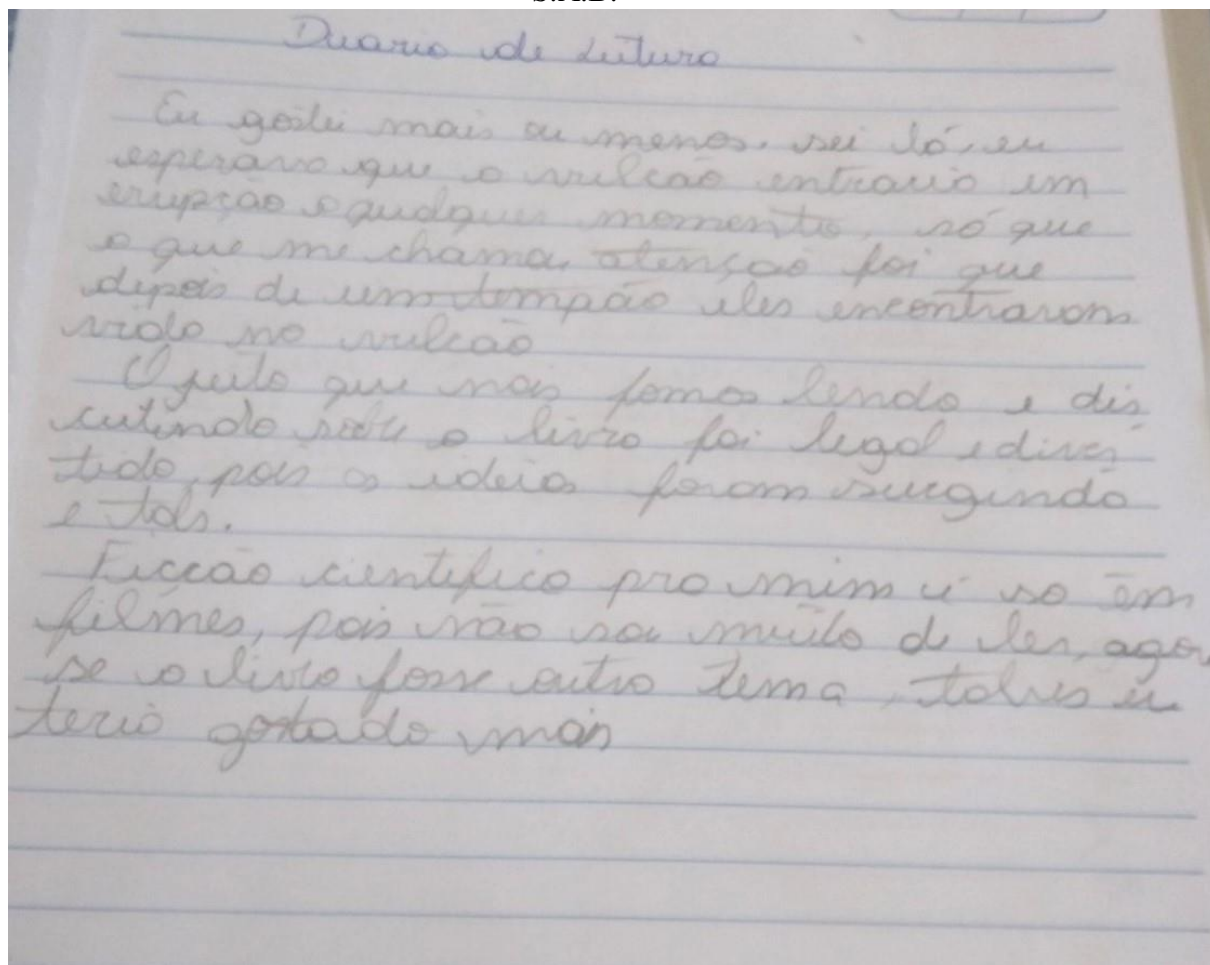 S.A.B.
Diario de Leitura
Eu gostei mais ou menos, sei lá, eu
esperava que o vulcão entraria em
erupção a qualquer momento, só que
o que me chama atenção foi que
depois de um tempão eles encontraram
vida no vulcão
O jeito que nós fomos lendo e dis
cutindo sobre o livro foi legal e diver
tido, pois as ideias foram surgindo
e tals.
Ficcão cientifica pra mim é so em
filmes, pois não sou muito de ler, agor
se o livro fosse outro tema, talves eu
teria gostado mais